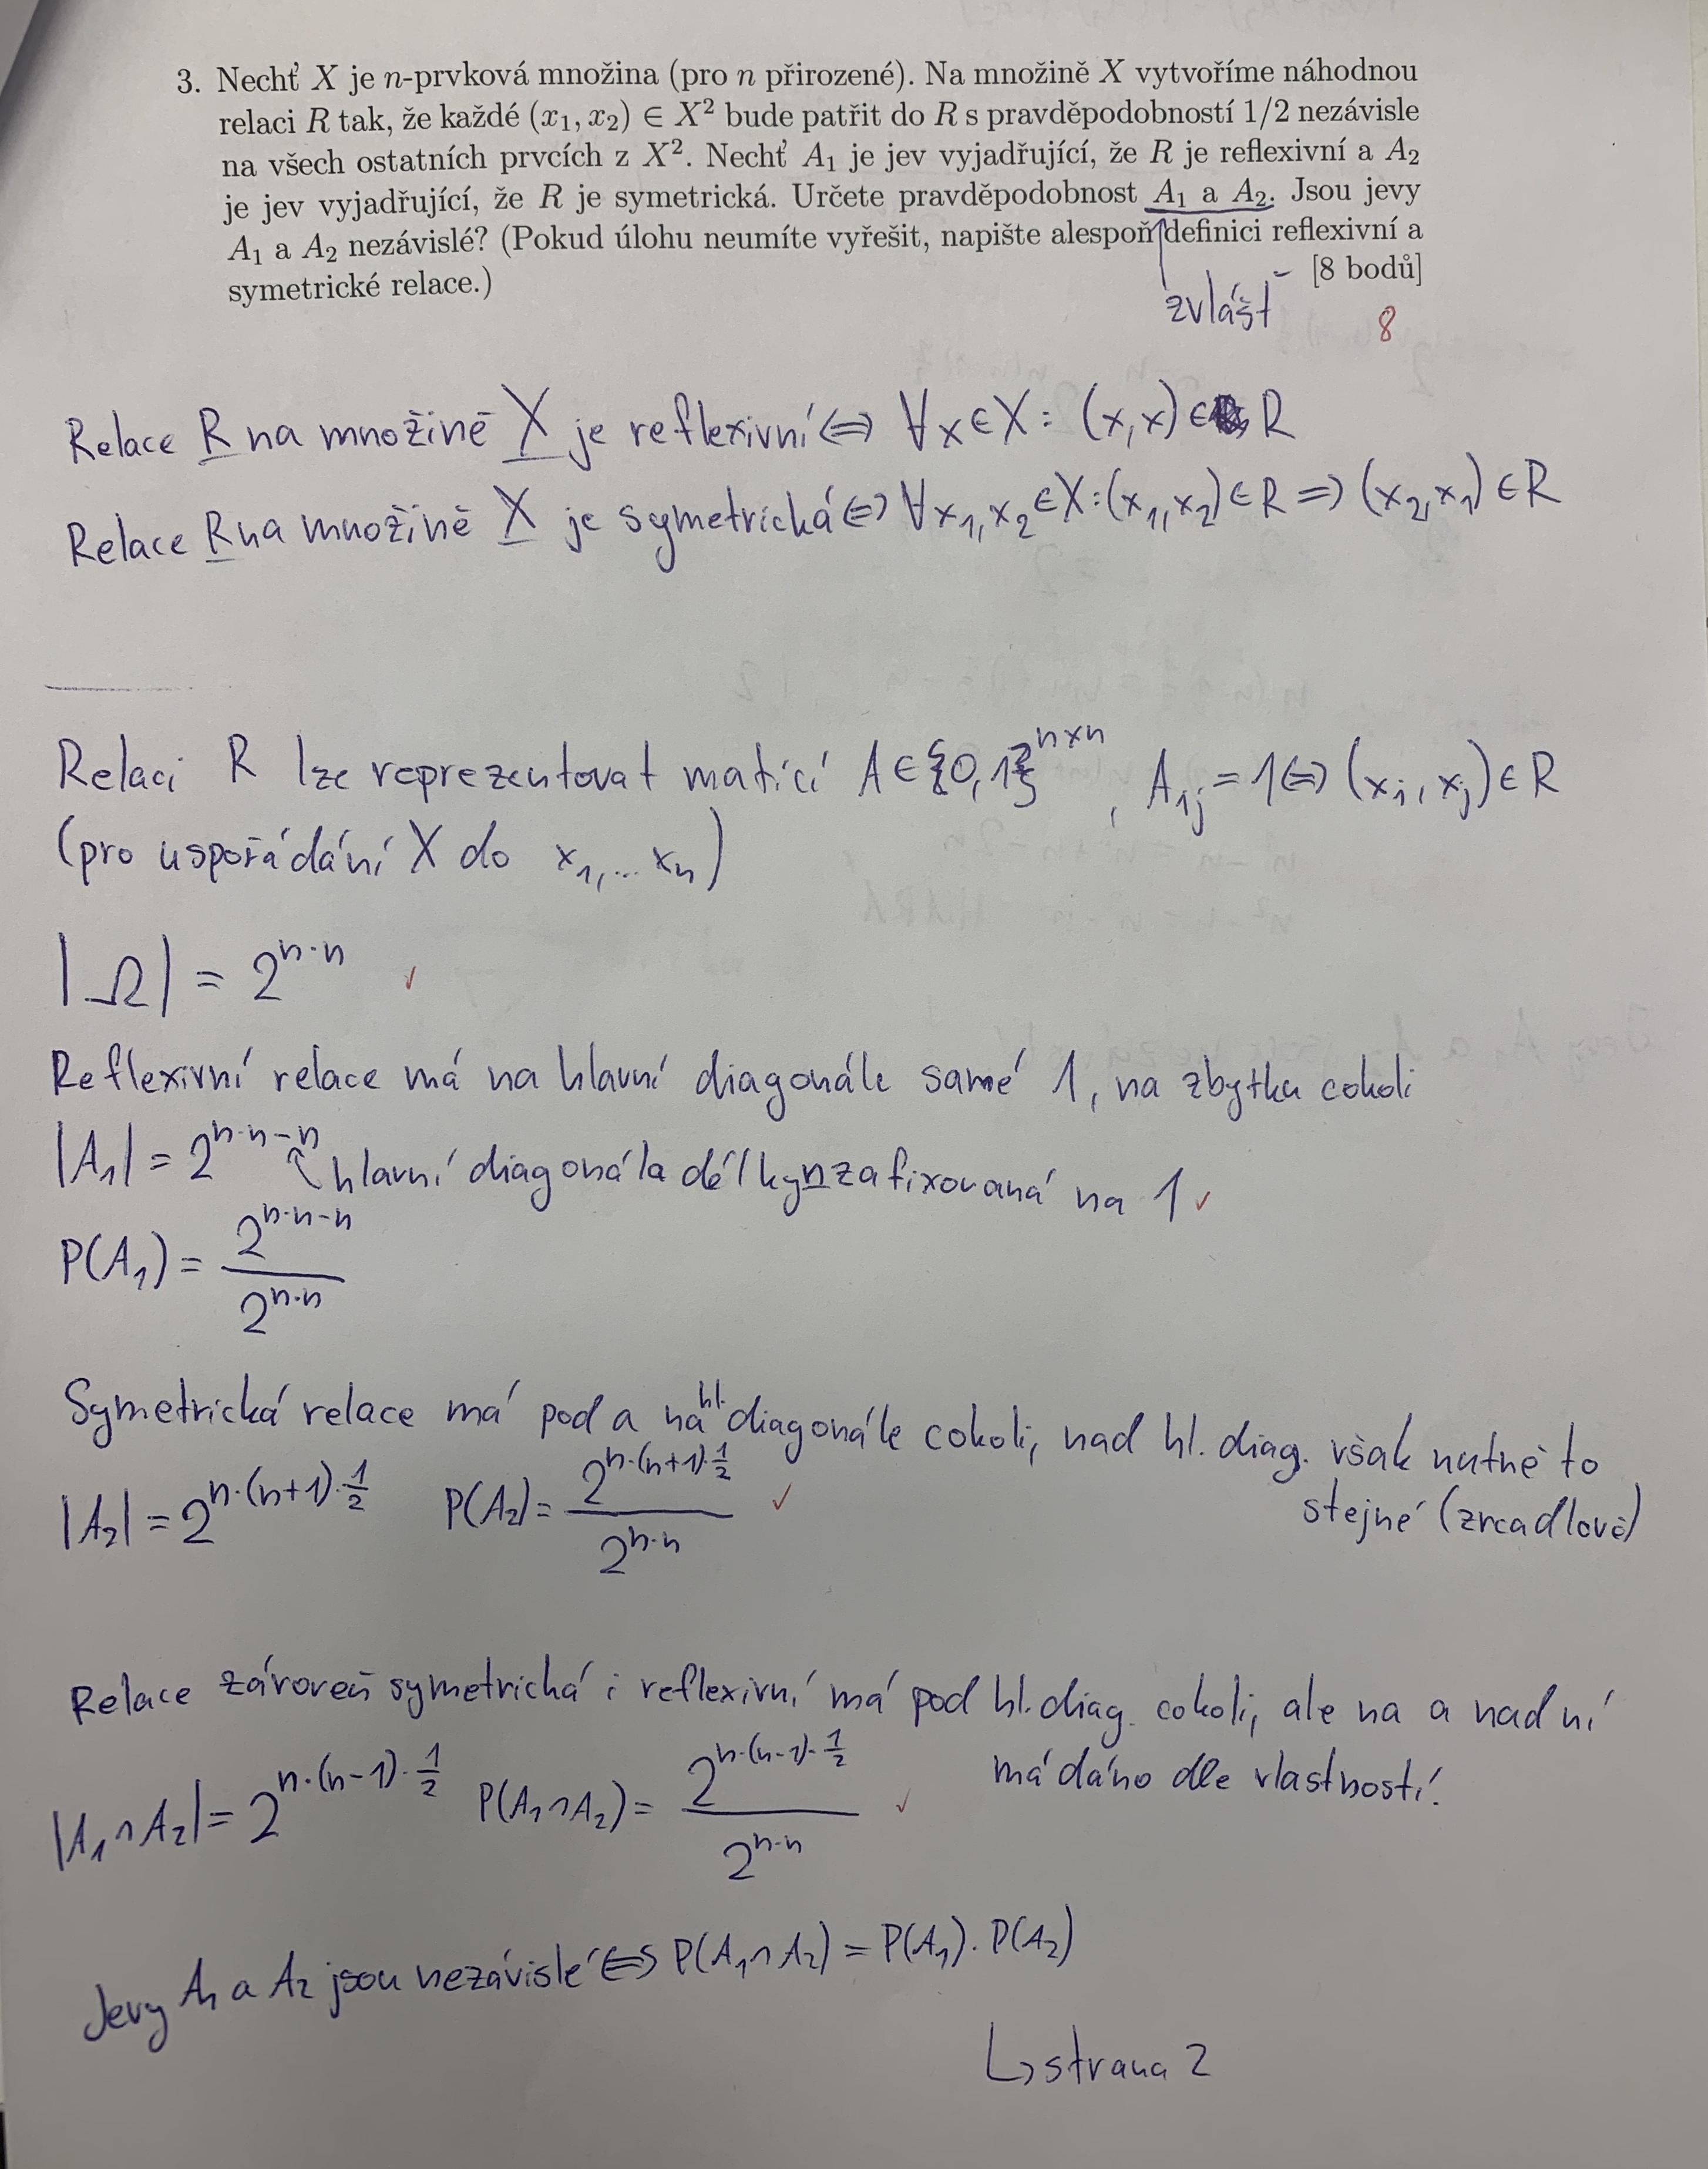 3. Nechť X je n-prvková množina (pro n přirozené). Na množině X vytvoříme náhodnou
relaci R tak, že každé (x₁, x₂) ∈ X² bude patřit do R s pravděpodobností 1/2 nezávisle
na všech ostatních prvcích z X². Nechť A₁ je jev vyjadřující, že R je reflexivní a A₂
je jev vyjadřující, že R je symetrická. Určete pravděpodobnost A₁ a A₂. Jsou jevy
A₁ a A₂ nezávislé? (Pokud úlohu neumíte vyřešit, napište alespoň definici reflexivní a
symetrické relace.) [8 bodů]
zvlášť
8
Relace R na množině X je reflexivní ⇔ ∀x∈X: (x,x)∈ R
Relace R na množině X je symetrická ⇔ ∀x₁,x₂∈X:(x₁,x₂)∈R ⇒ (x₂,x₁)∈R
Relaci R lze reprezentovat maticí A∈{0,1}ⁿˣⁿ, Aᵢⱼ = 1 ⇔ (xᵢ, xⱼ)∈R
(pro uspořádání X do x₁,... xₙ)
|Ω| = 2^{n·n} ✓
Reflexivní relace má na hlavní diagonále samé 1, na zbytku cokoli
|A₁| = 2^{n·n-n} hlavní diagonála délky n zafixovaná na 1 ✓
P(A₁) = 2^{n·n-n} / 2^{n·n}
Symetrická relace má pod a na hl. diagonále cokoli, nad hl. diag. však nutně to
stejné (zrcadlově)
|A₂| = 2^{n·(n+1)·1/2} P(A₂) = 2^{n·(n+1)·1/2} / 2^{n·n} ✓
Relace zároveň symetrická i reflexivní má pod hl. diag. cokoli, ale na a nad ní
má dáno dle vlastností.
|A₁∩A₂| = 2^{n·(n-1)·1/2} P(A₁∩A₂) = 2^{n·(n-1)·1/2} / 2^{n·n} ✓
Jevy A₁ a A₂ jsou nezávislé ⇔ P(A₁∩A₂) = P(A₁)·P(A₂)
↳ strana 2